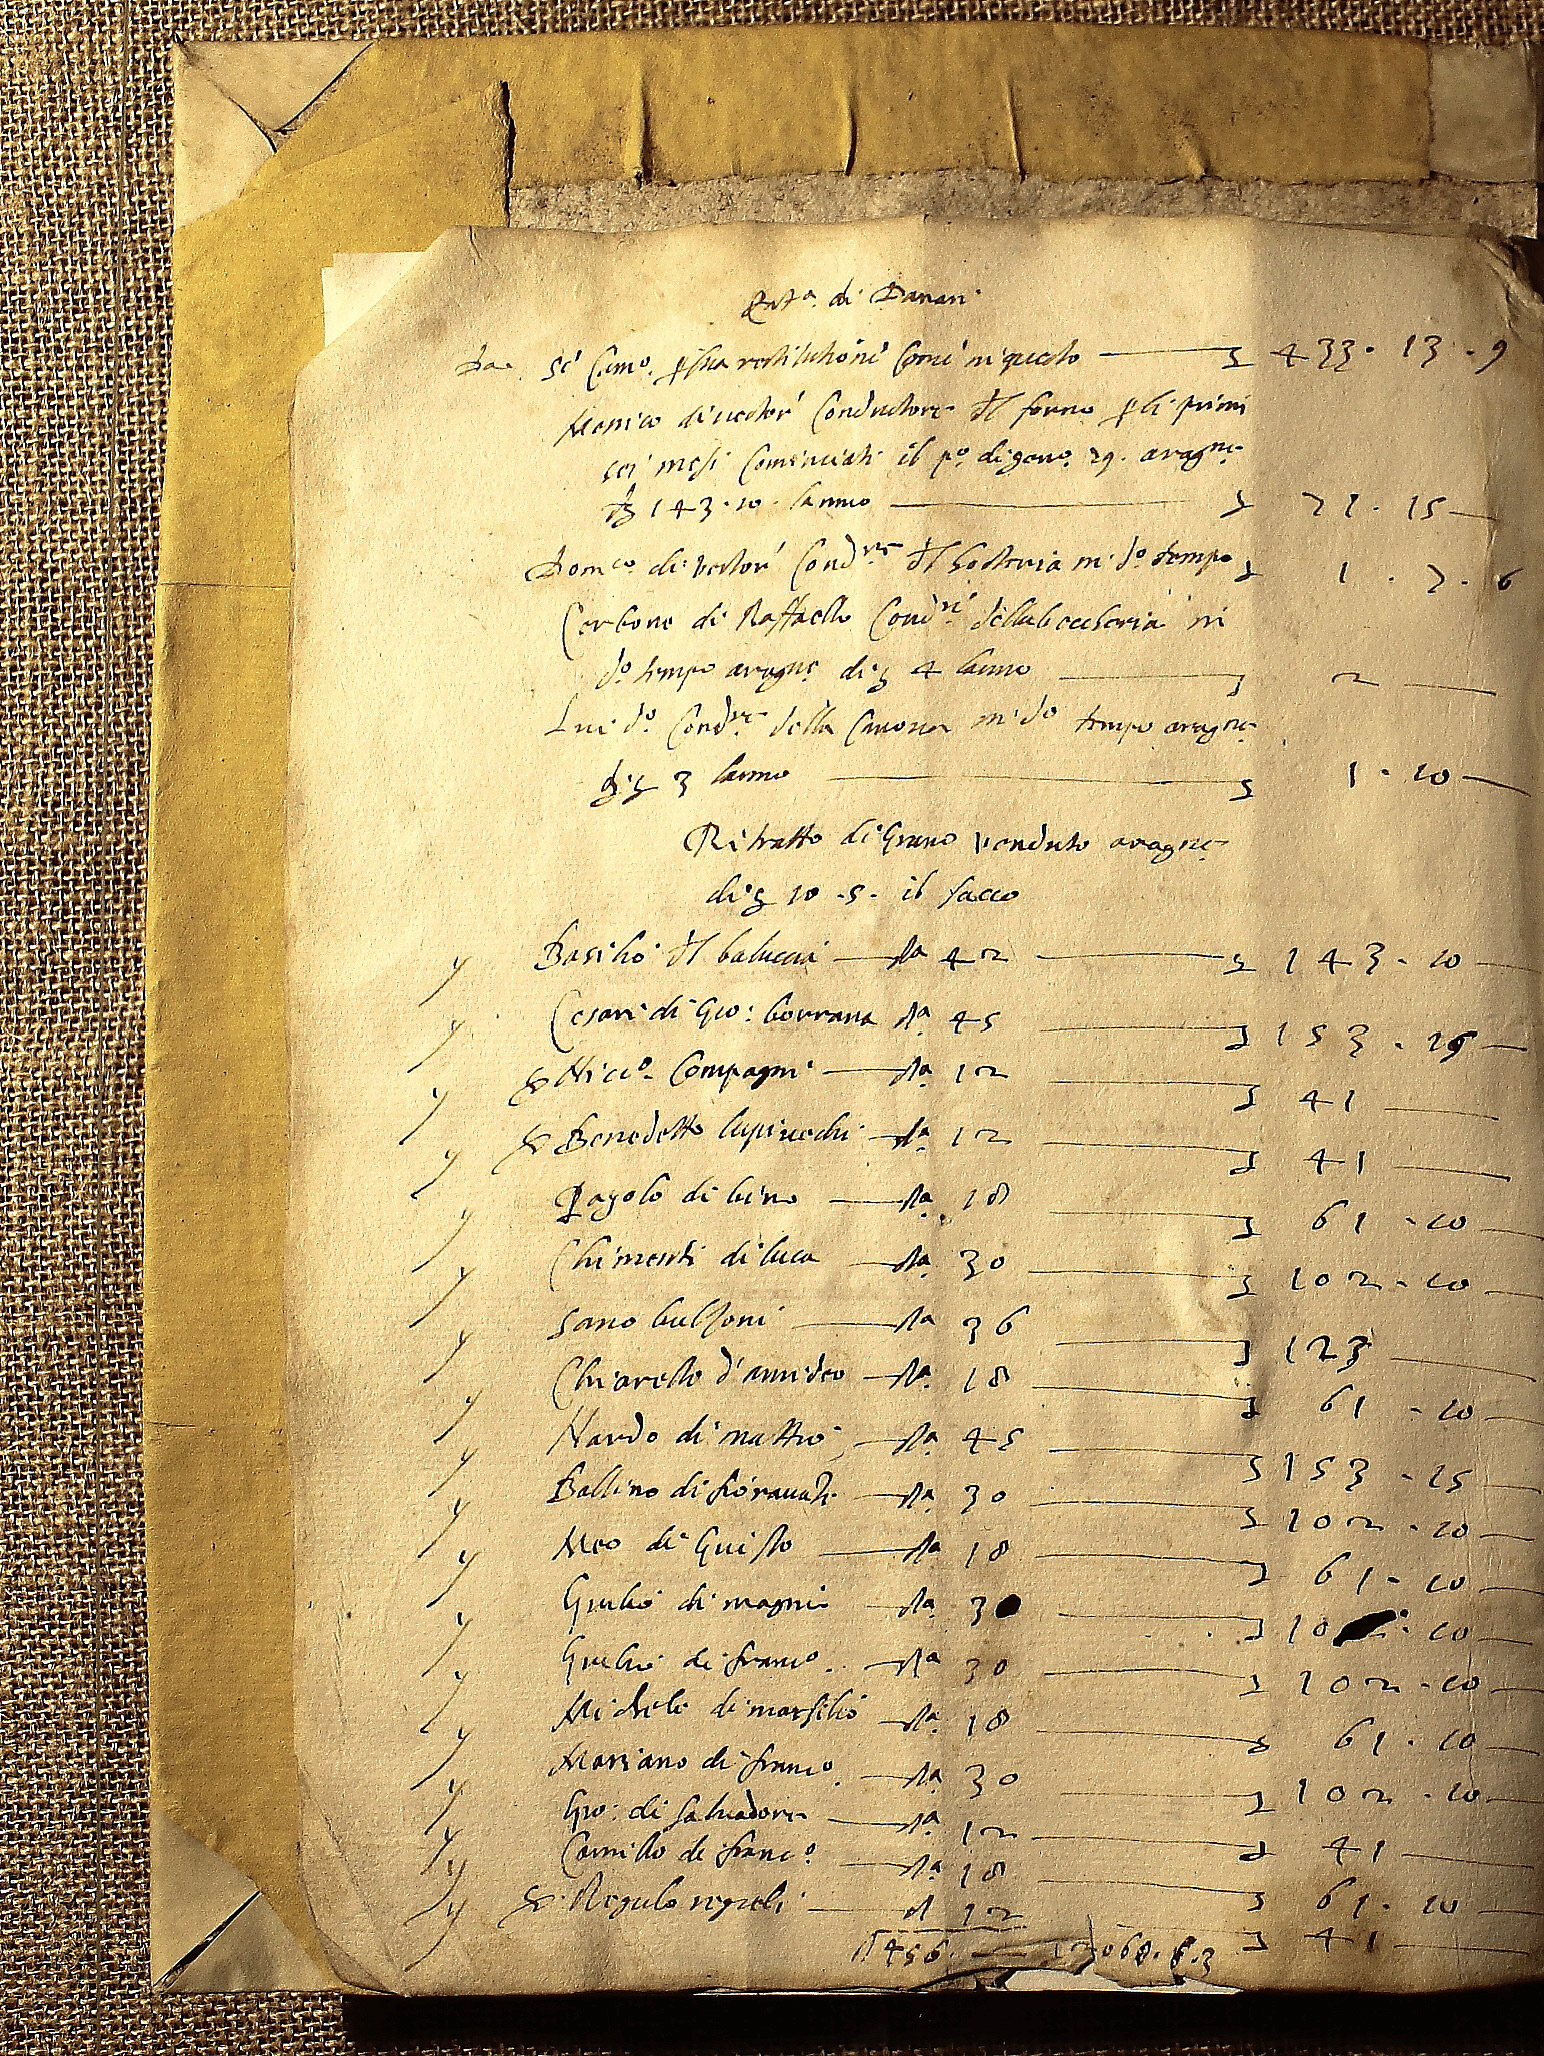 Entª. di Danari
Da. s: Camº. p sua restitutione come in questo — 433. 13. 9
Menico di vettori Conduttore dl forno p li primi
sei mesi Cominciati il pº. di genº. 29. aragne
di 143. 10. lanno — 71. 15 —
Domco di vettori Condre dl hosteria in do tempo 1. 7. 6
Carbone di Raffaello Condre della beccheria in
do tempo aragne di 4 lanno — 2 —
Lui do Condre della Canova in do tempo aragne
di 3 lanno — 1. 10 —
Ritratto di Grano venduto aragne
di 10. 5. il sacco
Basilio dl baluccia — sta 42 — 143. 10 —
Cesare di Gio: borrana sta 45 — 153. 15 —
Nicco. Compagni — sta 12 — 41 —
Benedetto lupicechi — sta 12 — 41 —
Pagolo di bino — sta 18 — 61. 10 —
Chimenti di luca — sta 30 — 102. 10 —
Sano bulzoni — sta 36 — 123 —
Chiarello d'amideo — sta 18 — 61. 10 —
Nardo di matteo — sta 45 — 153. 15
Ballino di fioravati — sta 30 — 102. 10 —
Meo di Giusto — sta 18 — 61. 10 —
Giulio di magnio — sta 30 — 10 . 10 —
Giulio di francº. — sta 30 — 102. 10 —
Michele di marsilio — sta 18 — 61. 10 —
Mariano di francº. — sta 30 — 102. 10 —
Gio: di salvadore — sta 12 — 41 —
Camillo di francº — sta 18 — 61. 10 —
Regulo regoli — st 12 — 41 —
st 456. — 068. 6. 3